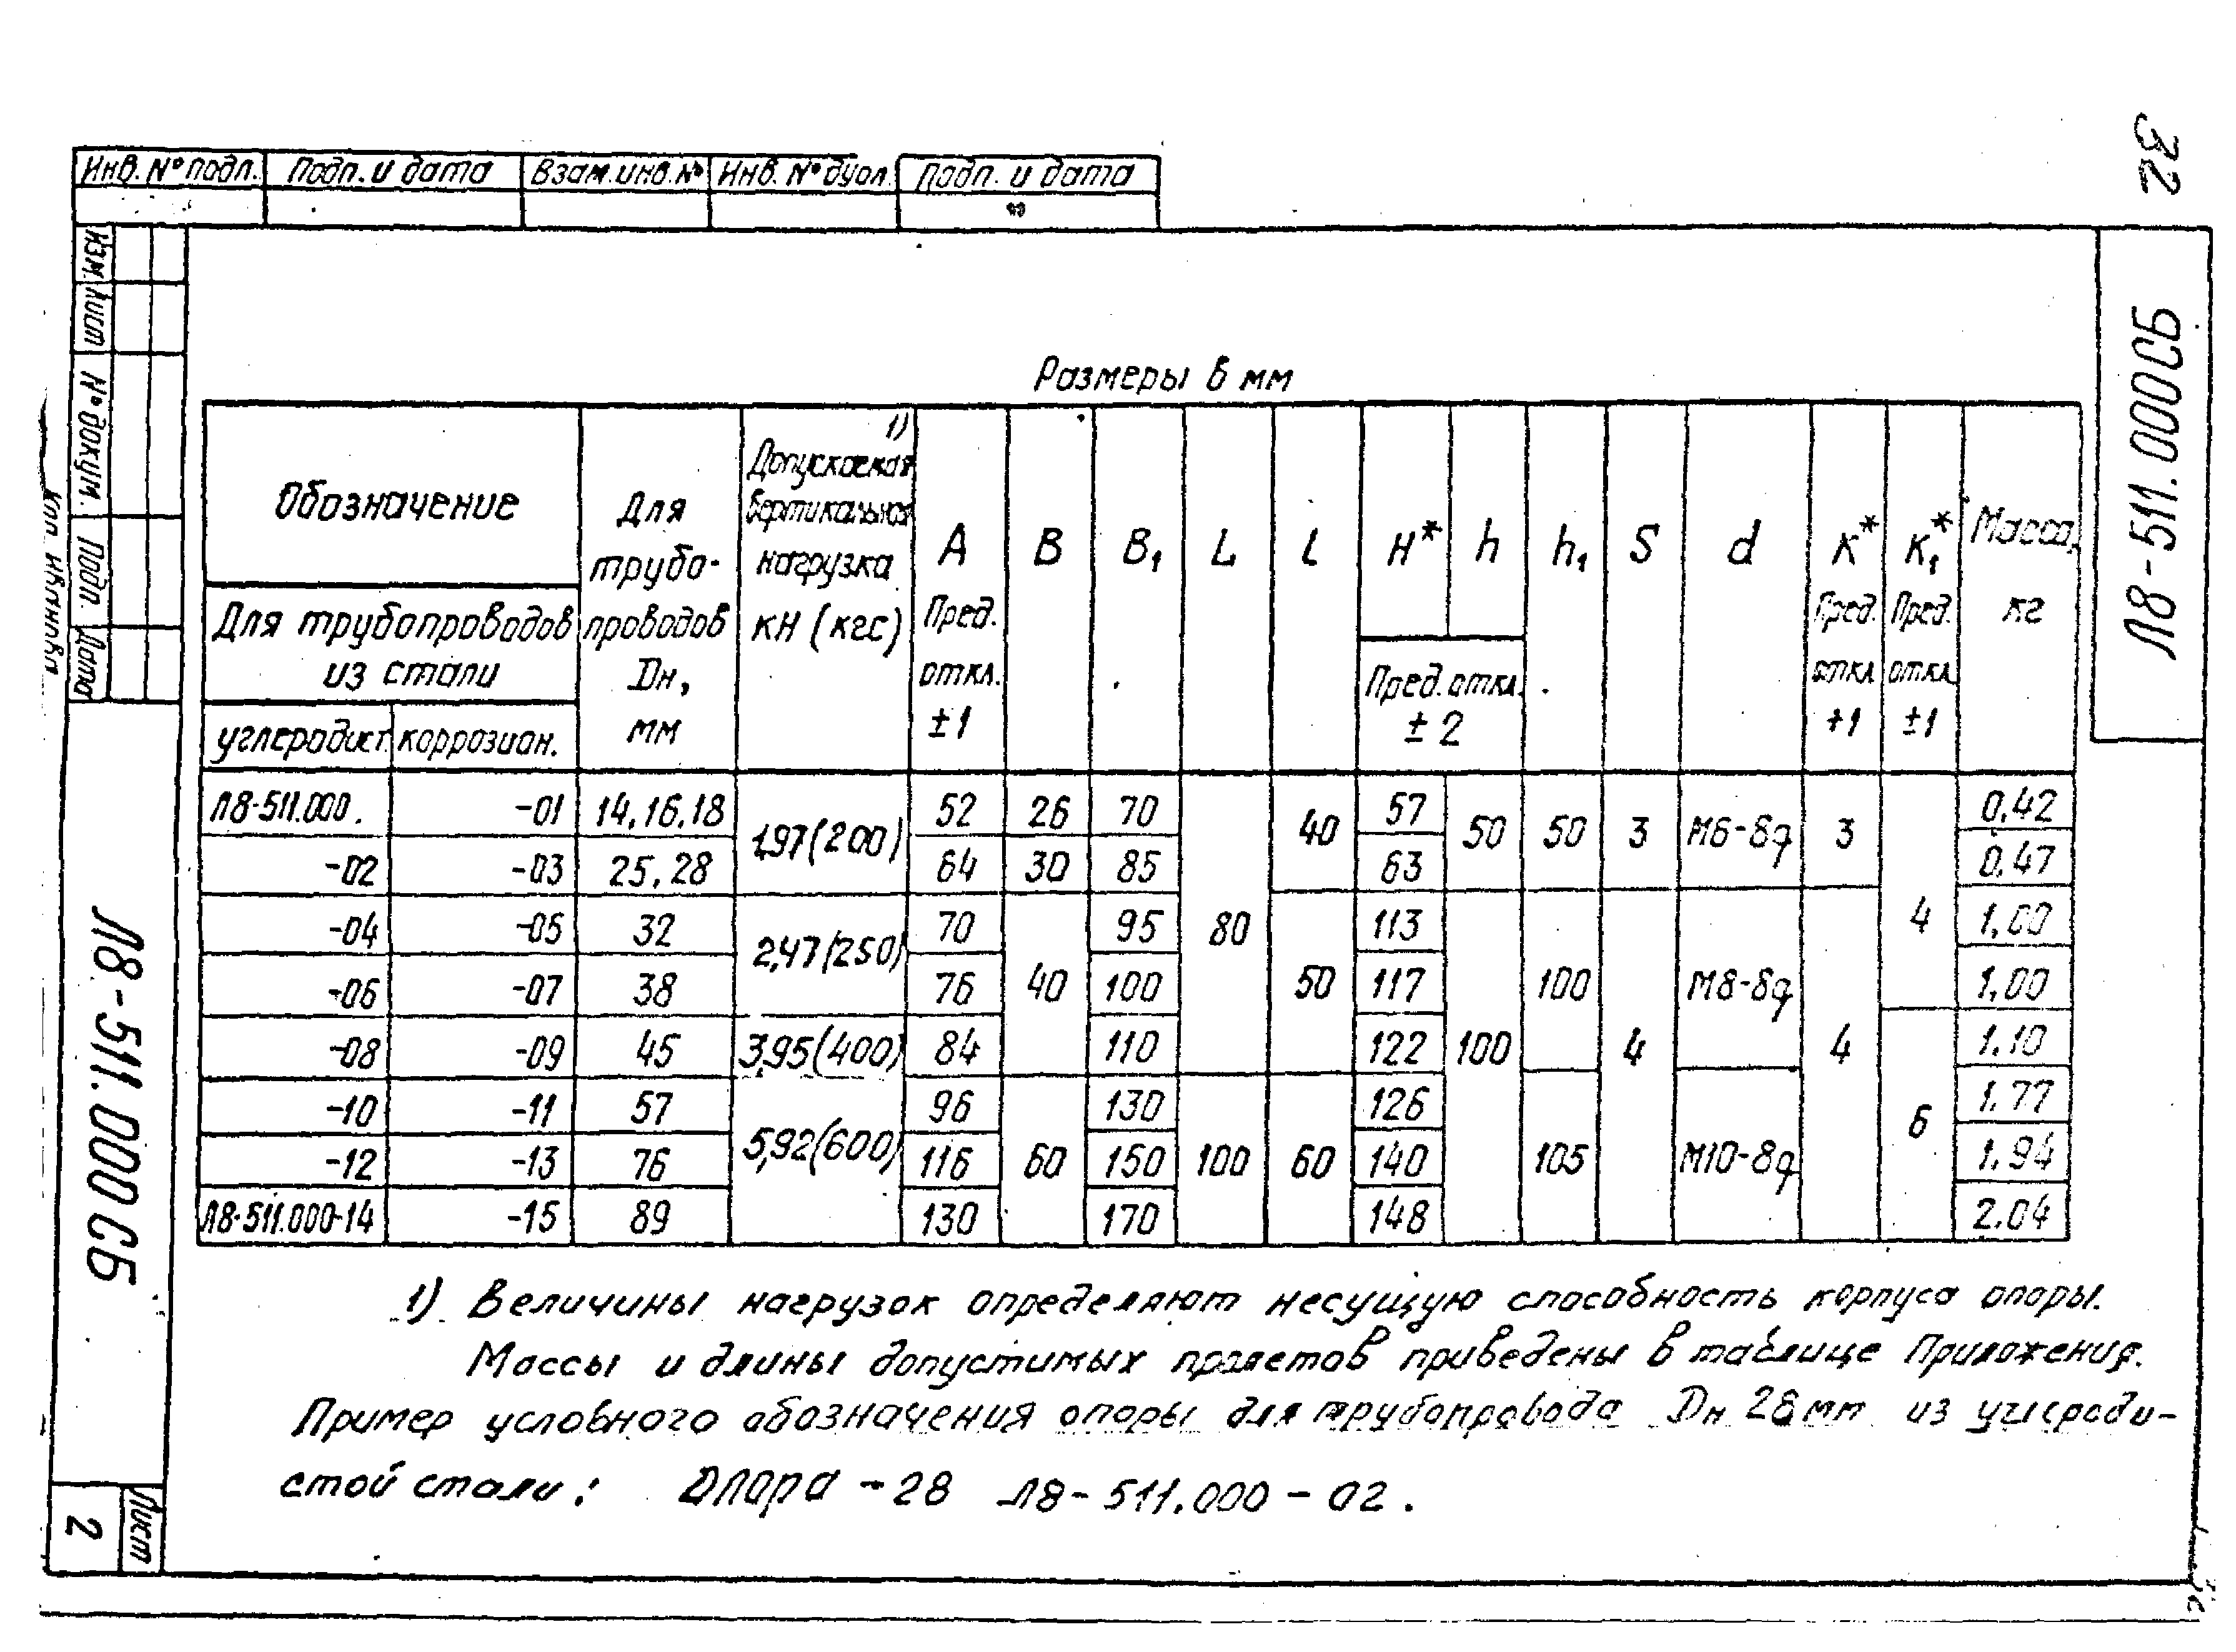 32
Инв. № подл. Подп. и дата Взам. инв. № Инв. № дубл. Подп. и дата
Изм. Лист № докум. Подп. Дата
Л8-511.000СБ
Размеры в мм
Обозначение
Для трубопроводов из стали
углеродист. коррозиан.
Для трубо-
проводов
Dн,
мм
Допускаемая 1)
вертикальная
нагрузка
кН (кгс)
A Пред. откл. ±1
B
B₁
L
l
H* h
Пред. откл. ±2
h₁
S
d
K* Пред. откл ±1
K₁* Пред. откл ±1
Масса, кг
Л8-511.000. -01 14,16,18 1,97(200) 52 26 70 80 40 57 50 50 3 М6-8g 3 4 0,42
-02 -03 25,28 64 30 85 63 0,47
-04 -05 32 2,47(250) 70 40 95 50 113 100 100 4 М8-8g 4 1,00
-06 -07 38 76 100 117 1,00
-08 -09 45 3,95(400) 84 110 122 6 1.10
-10 -11 57 5,92(600) 96 60 130 100 60 126 105 М10-8g 1.77
-12 -13 76 116 150 140 1.94
Л8-511.000-14 -15 89 130 170 148 2.04
1) Величины нагрузок определяют несущую способность корпуса опоры.
Массы и длины допустимых пролетов приведены в таблице Приложения.
Пример условного обозначения опоры для трубопровода Dн 28мм из углероди-
стой стали: Опора -28 Л8-511.000-02.
Кол. Иванова
Л8-511.000СБ
Лист
2